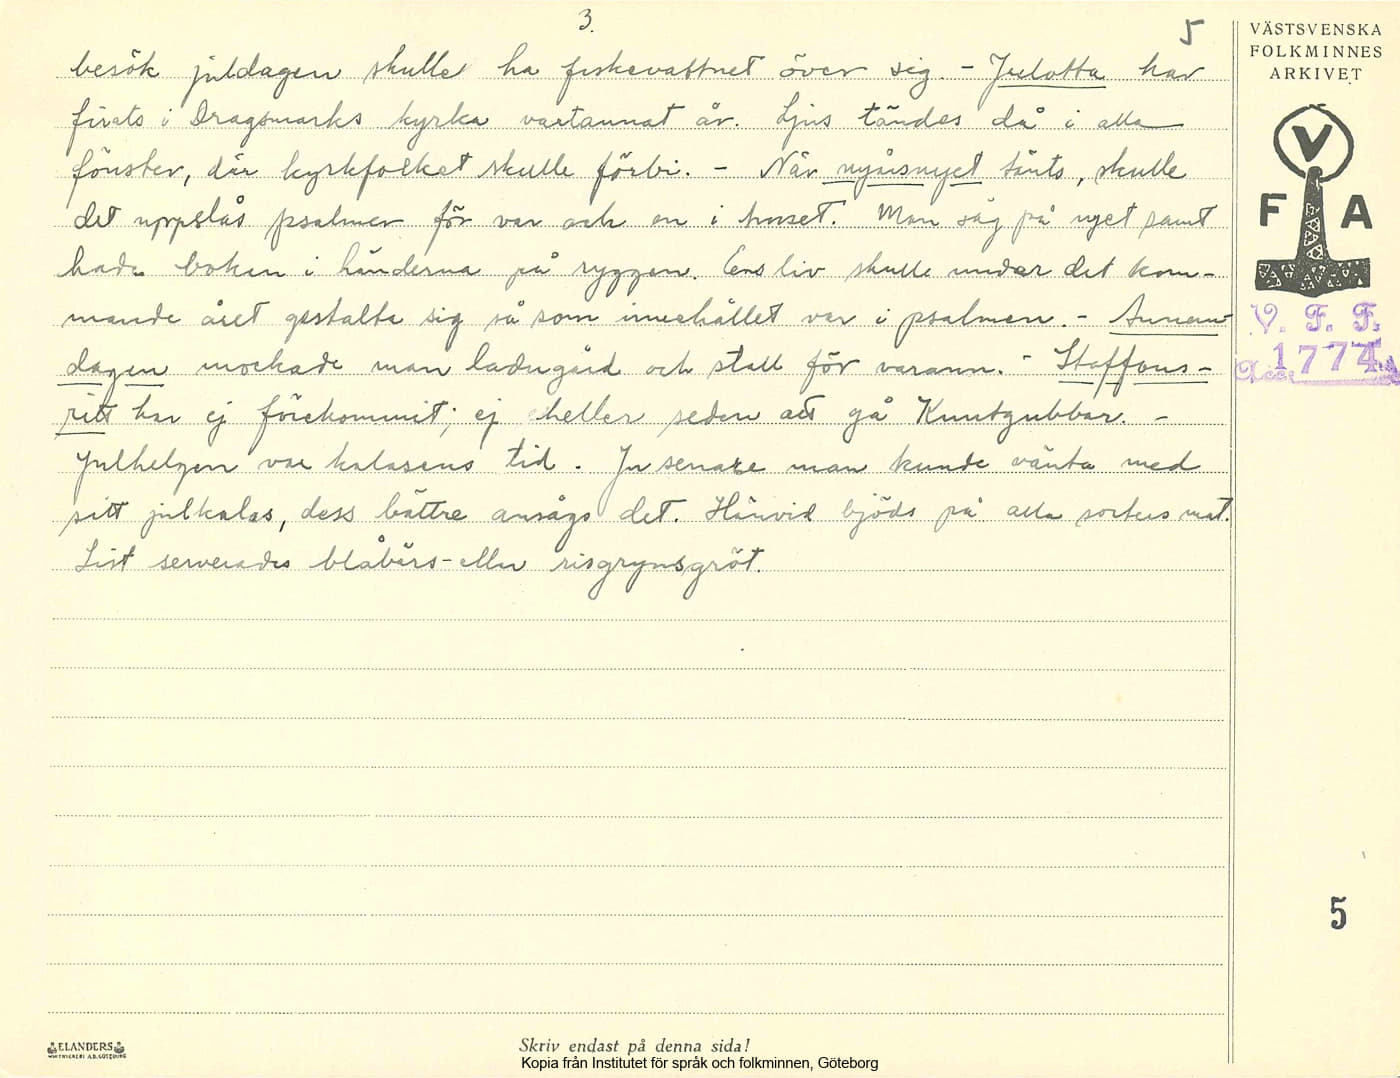 3.
5
VÄSTSVENSKA
FOLKMINNES
ARKIVET
V
F A
V. F. F.
Acc. 1774
besök juldagen skulle ha fiskevattnet över sig. – Julotta har
firats i Dragsmarks kyrka vartannat år. Ljus tändes då i alla
fönster, där kyrkfolket skulle förbi. – När nyårsnyet tänts, skulle
det uppslås psalmer för var och en i huset. Man såg på nyet samt
hade boken i händerna på ryggen. Ens liv skulle under det kom-
mande året gestalta sig så som innehållet var i psalmen. – Annan-
dagen mockade man ladugård och stall för varann. – Staffans-
ritt har ej förekommit; ej heller seden att gå Knutgubbar. –
Julhelgen var kalasens tid. Ju senare man kunde vänta med
sitt julkalas, dess bättre ansågs det. Härvid bjöds på alla sorters mat.
Sist serverades blåbärs- eller risgrynsgröt.
5
ELANDERS
Skriv endast på denna sida!
Kopia från Institutet för språk och folkminnen, Göteborg